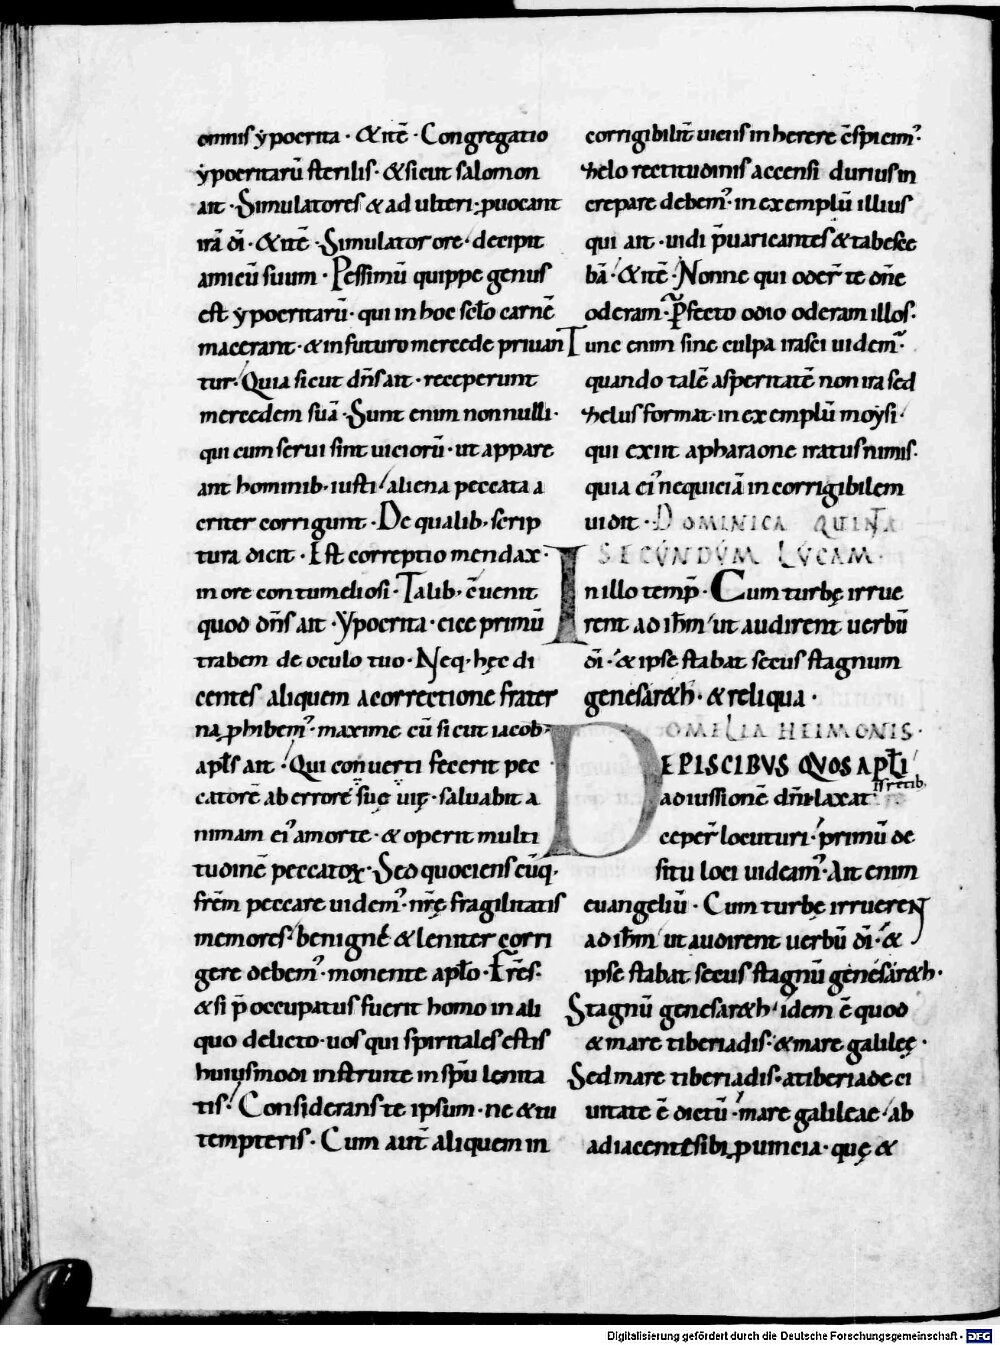 omnis ẏpocrita · & itē · Congregatio
ẏpocritarū sterilis · & sicut salomon
ait · Simulatores & adulteri ꝓuocant
irā dī · & itē · Simulator ore · decipit
amicū suum · Pessimū quippe genus
est ẏpocritarū · qui in hoc scło carnē
macerant · & in futuro mercede priuan
tur · Quia sicut dn̄s ait · receperunt
mercedem suā · Sunt enim nonnulli ·
qui cum serui sint uiciorū · ut appare
ant hominib· iusti / aliena peccata a
criter corrigunt · De qualib· scrip
tura dicit · Est correptio mendax ·
in ore contumeliosi · Talib· c̄uenit
quod dn̄s ait · Ypocrita · eice primū
trabem de oculo tuo · Neq· hęc di
centes aliquem a correctione frater
na ꝓhibem᾽ · maxime cū sicut iacob᾽
apłs ait · Qui conuerti fecerit pec
catorē ab errore suę uię · saluabit a
nimam ei᾽ a morte · & operit multi
tudinē peccatoꝝ · Sed quociens cūq·
frēm peccare uidem᾽ · nr̄ę fragilitatis
memores · benigne & leniter corri
gere debem᾽ · monente apło · Fr̄es ·
& si p̄occupatus fuerit homo in ali
quo delicto · uos qui spiritales estis
huiusmodi instruite in sp̄u lenita
tis · Considerans te ipsum · ne & tu
tempteris · Cum aut̄ aliquem in
corrigibilit̄ uiciis inherere c̄spicim᾽ ·
zelo rectitudinis accensi durius in
crepare debem᾽ · in exemplū illius
qui ait · uidi p̄uaricantes & tabesce
bā · & itē · Nonne qui oder̄ te dn̄e
oderam · ꝑfecto odio oderam illos ·
Tunc enim sine culpa irasci uidem᾽ ·
quando talē asperitatē non ira sed
zelus format · in exemplū moẏsi ·
qui exiit a pharaone iratus nimis ·
quia ei᾽ nequiciā incorrigibilem
uidit · DOMINICA QUINTA
SECUNDUM LUCAM ·
In illo temp̄ · Cum turbę irrue
rent ad ih̄m / ut audirent uerbū
dī · & ipse stabat secus stagnum
genesar&h · & reliqua ·
OMELIA HEIMONIS ·
DE PISCIBUS QUOS APŁI
ad iussionē dn̄i laxat
ceper̄ locuturi · primū de
situ loci uideam᾽ · Ait enim
euangeliū · Cum turbę irruerent
ad ih̄m / ut audirent uerbū dī · &
ipse stabat secus stagnū genesar&h ·
Stagnū genesar&h / idem ē quod
& mare tiberiadis · & mare galileę ·
Sed mare tiberiadis · a tiberiade ci
uitate ē dictū · mare galileae / ab
adiacente sibi ꝓuincia · quę &
Digitalisierung gefördert durch die Deutsche Forschungsgemeinschaft - DFG